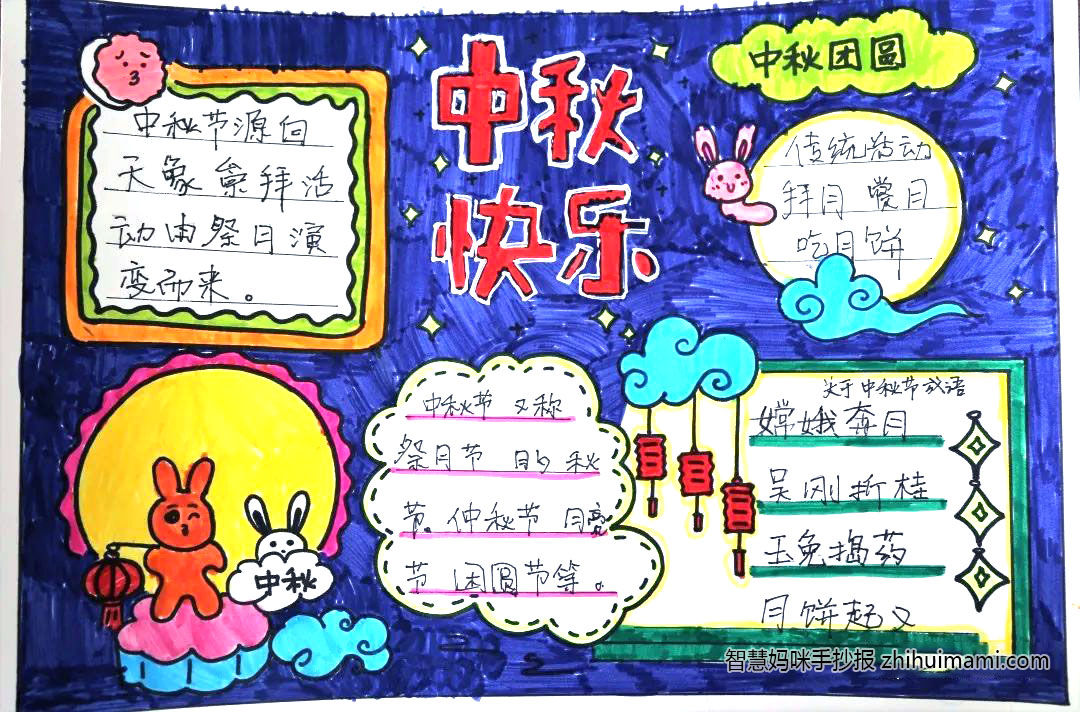 中秋节源自
天象崇拜活
动由祭月演
变而来。
中秋
快乐
中秋团圆
传统活动
拜月 赏月
吃月饼
中秋
中秋节 又称
祭月节 的秋
节。仲秋节 月亮
节 团圆节等。
关于中秋节成语
嫦娥奔月
吴刚折桂
玉兔捣药
月饼起义
智慧妈咪手抄报 zhihuimami.com